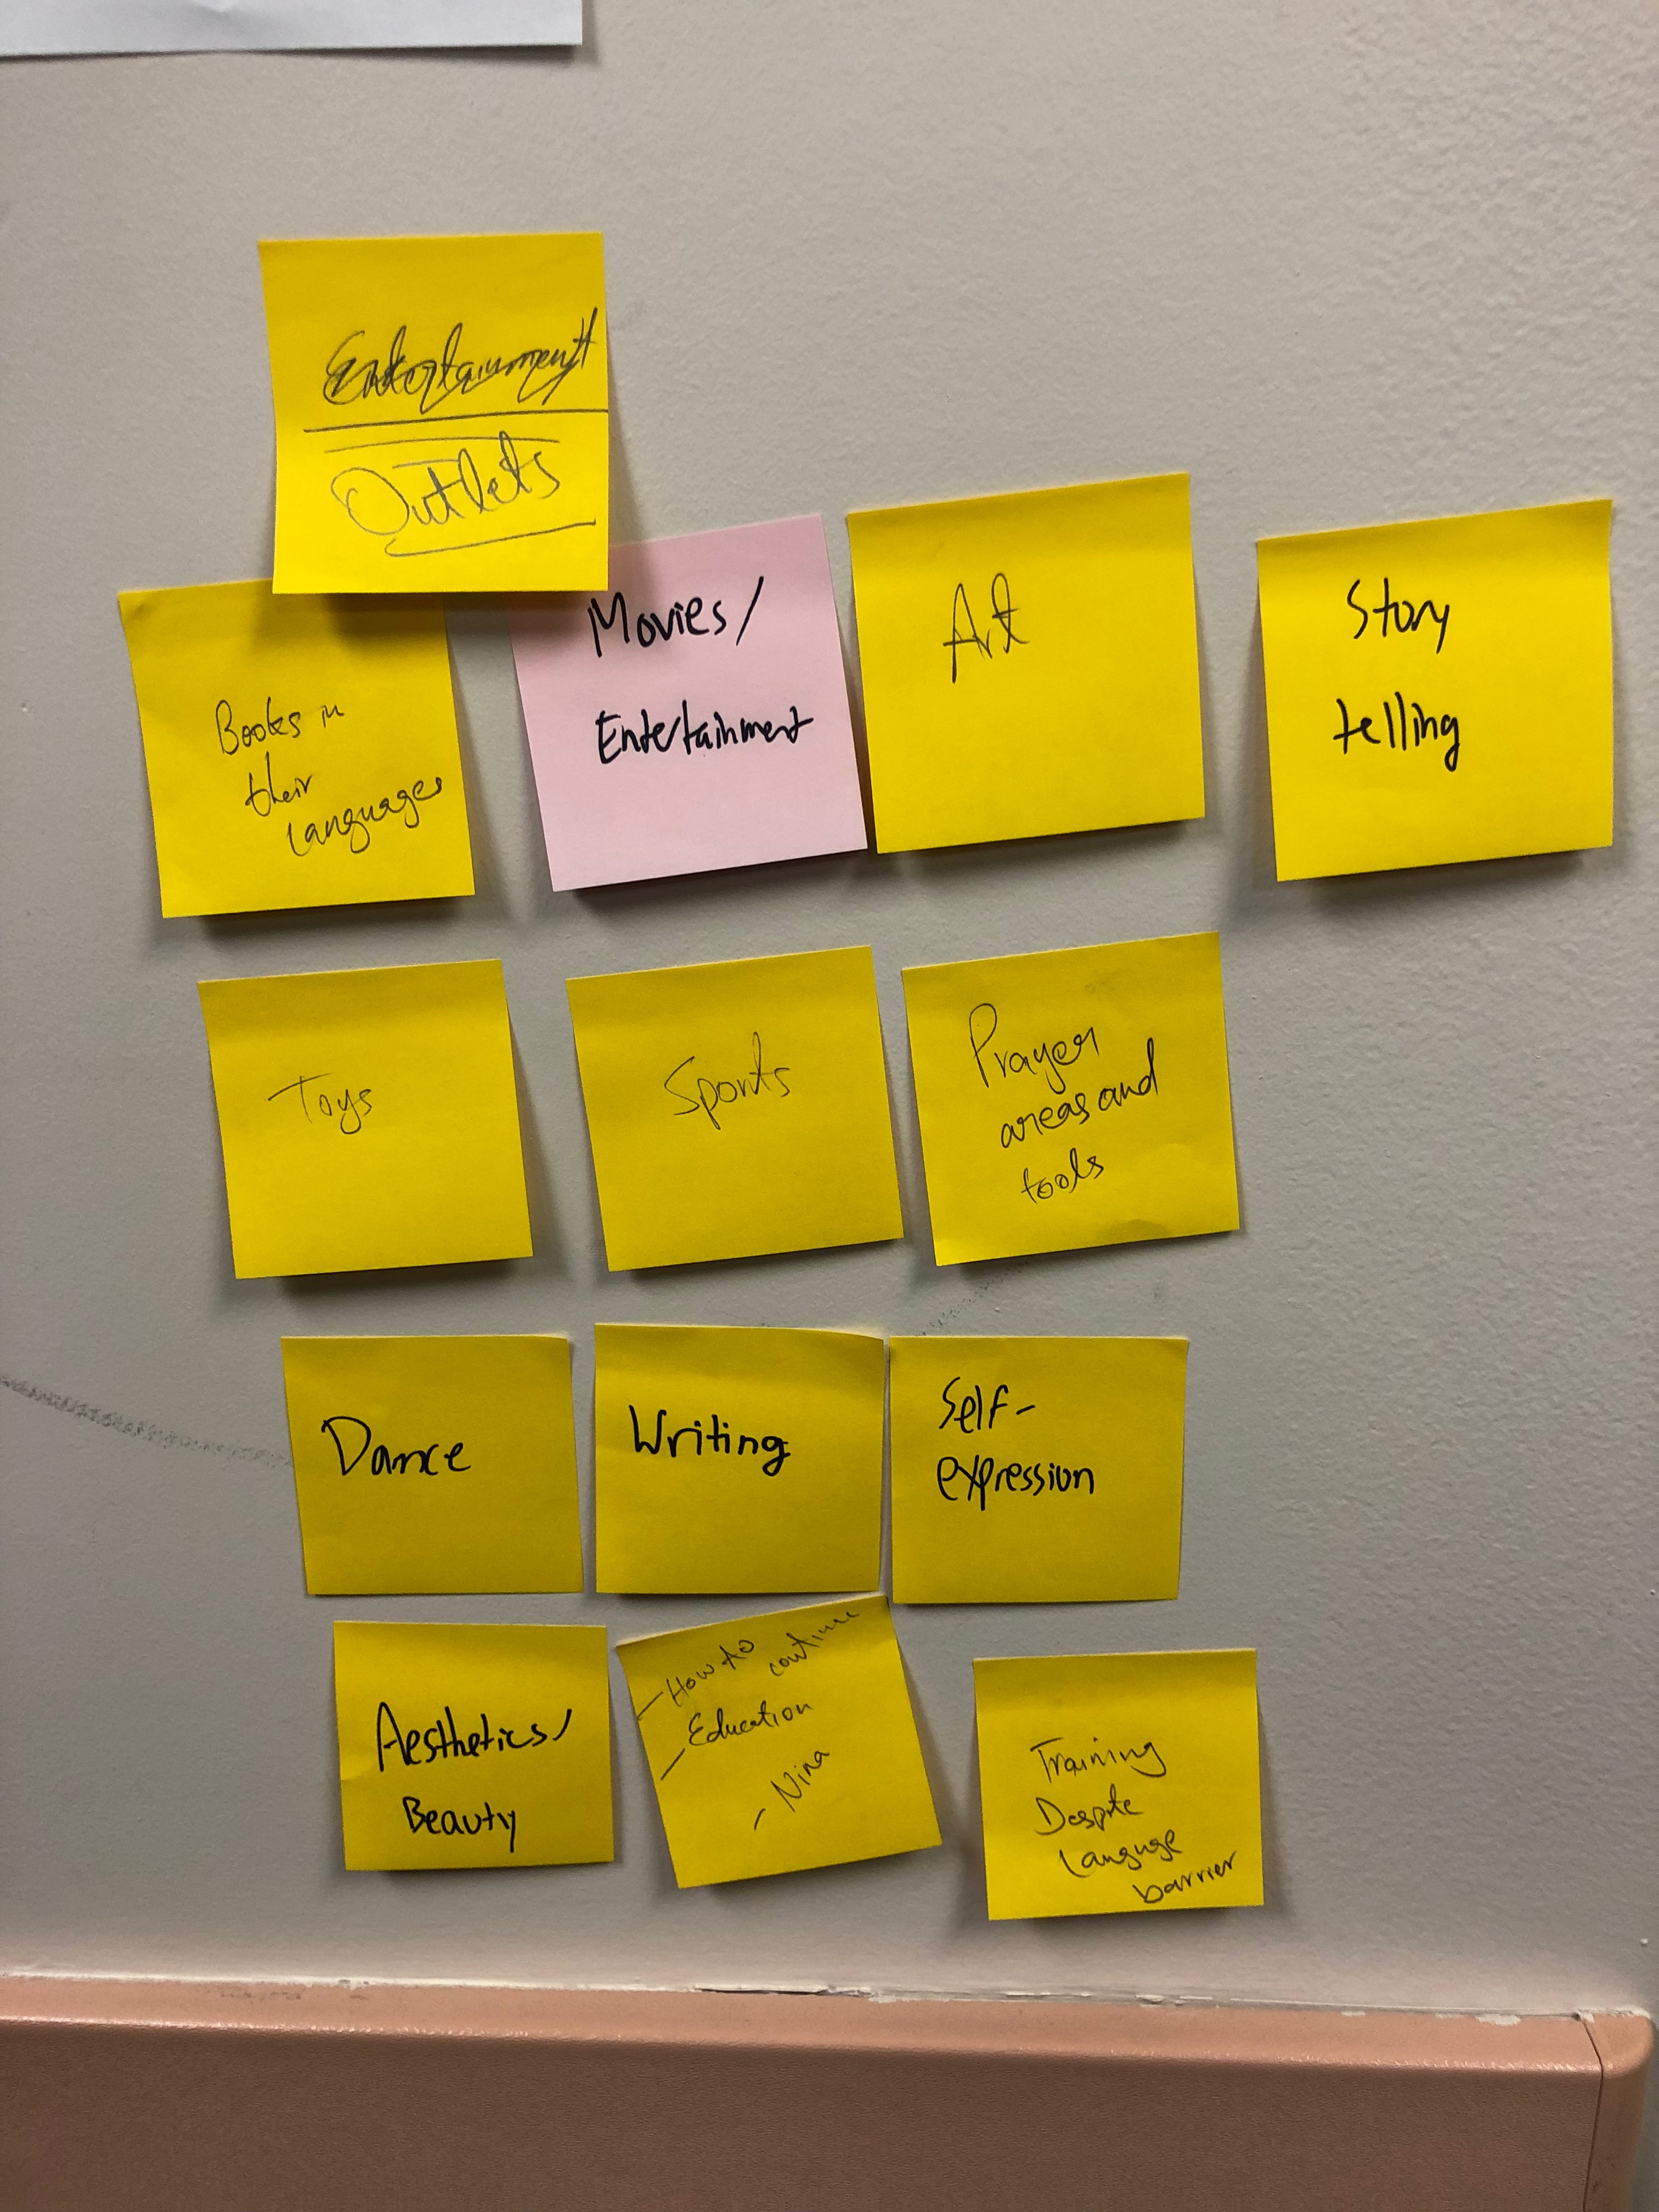 Entertainment
Outlets
Books in
their
languages
Movies/
Entertainment
Art
Story
telling
Toys
Sports
Prayer
areas and
tools
Dance
Writing
Self-
expression
Aesthetics/
Beauty
- How to continue
- Education
- Nina
Training
Despite
Languge
barrier